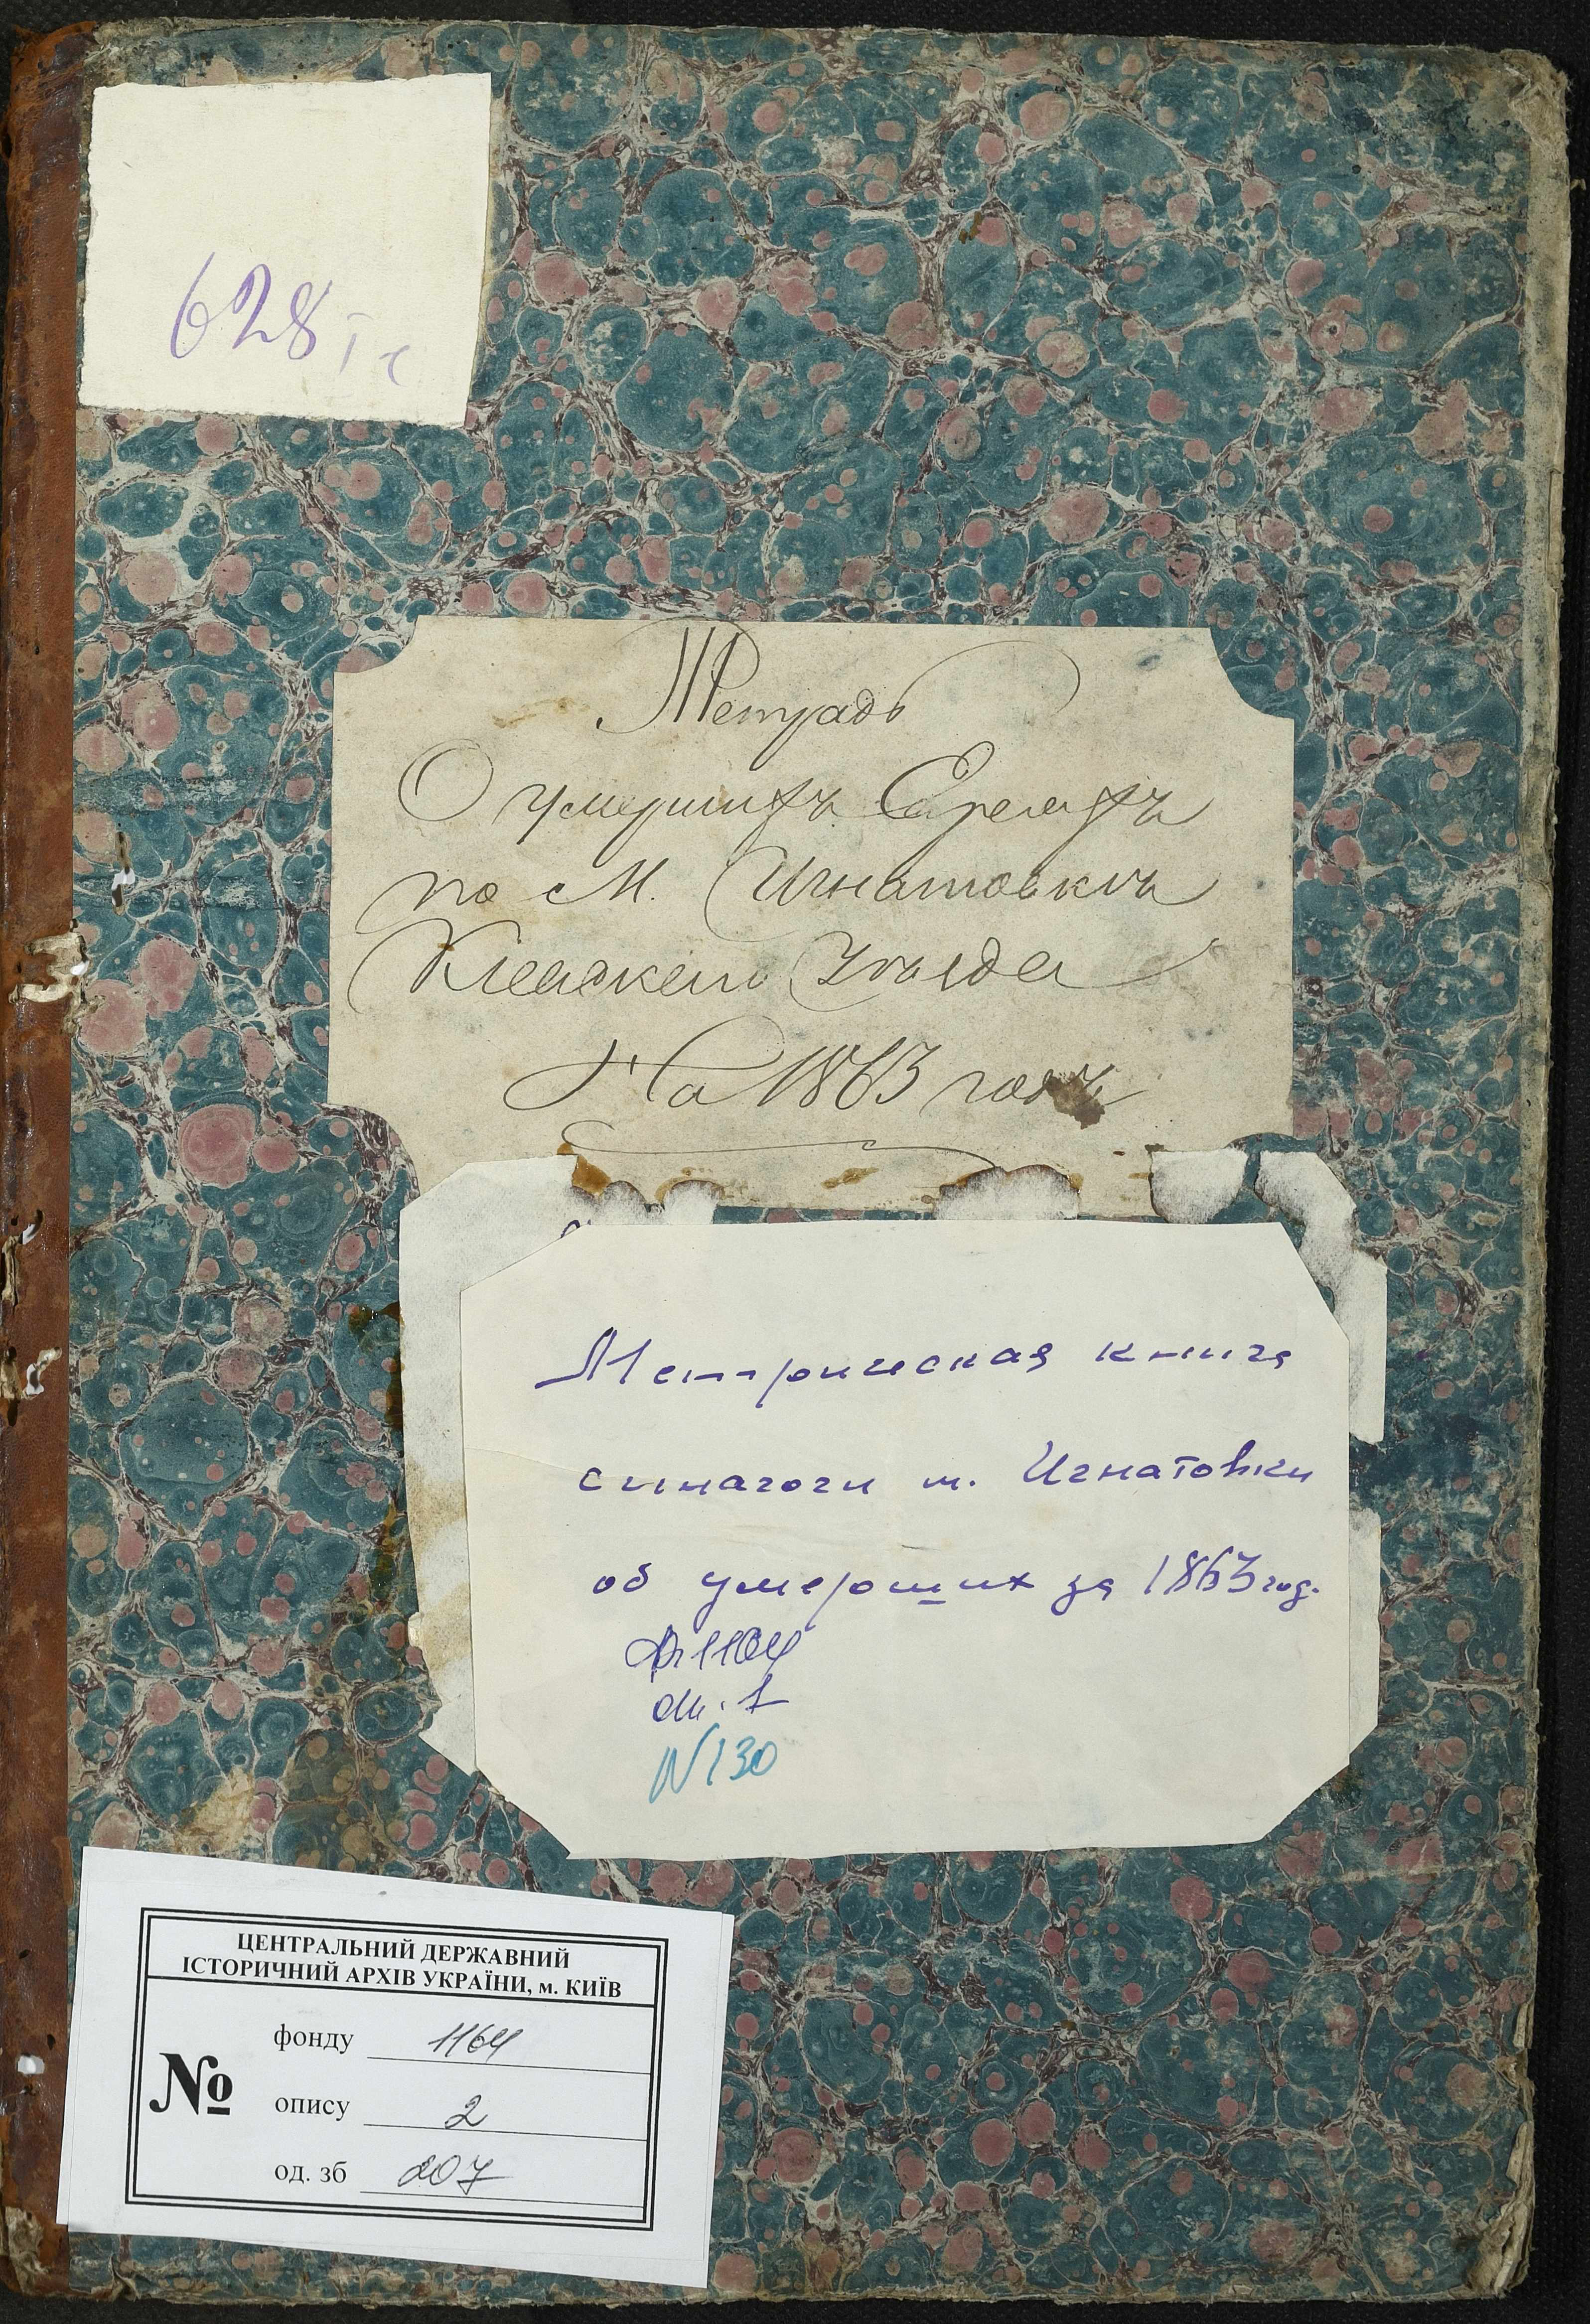 628
Тетрадь
О умершихъ Евреяхъ
по М. Игнатовки
Киевскаго уезда
На 1863 годъ
Метрическая книга
синагоги м. Игнатовки
об умерших за 1863 год.
оп. 1
N 130
ЦЕНТРАЛЬНИЙ ДЕРЖАВНИЙ
ІСТОРИЧНИЙ АРХІВ УКРАЇНИ, м. КИЇВ
№
фонду 1164
опису 2
од. зб 207